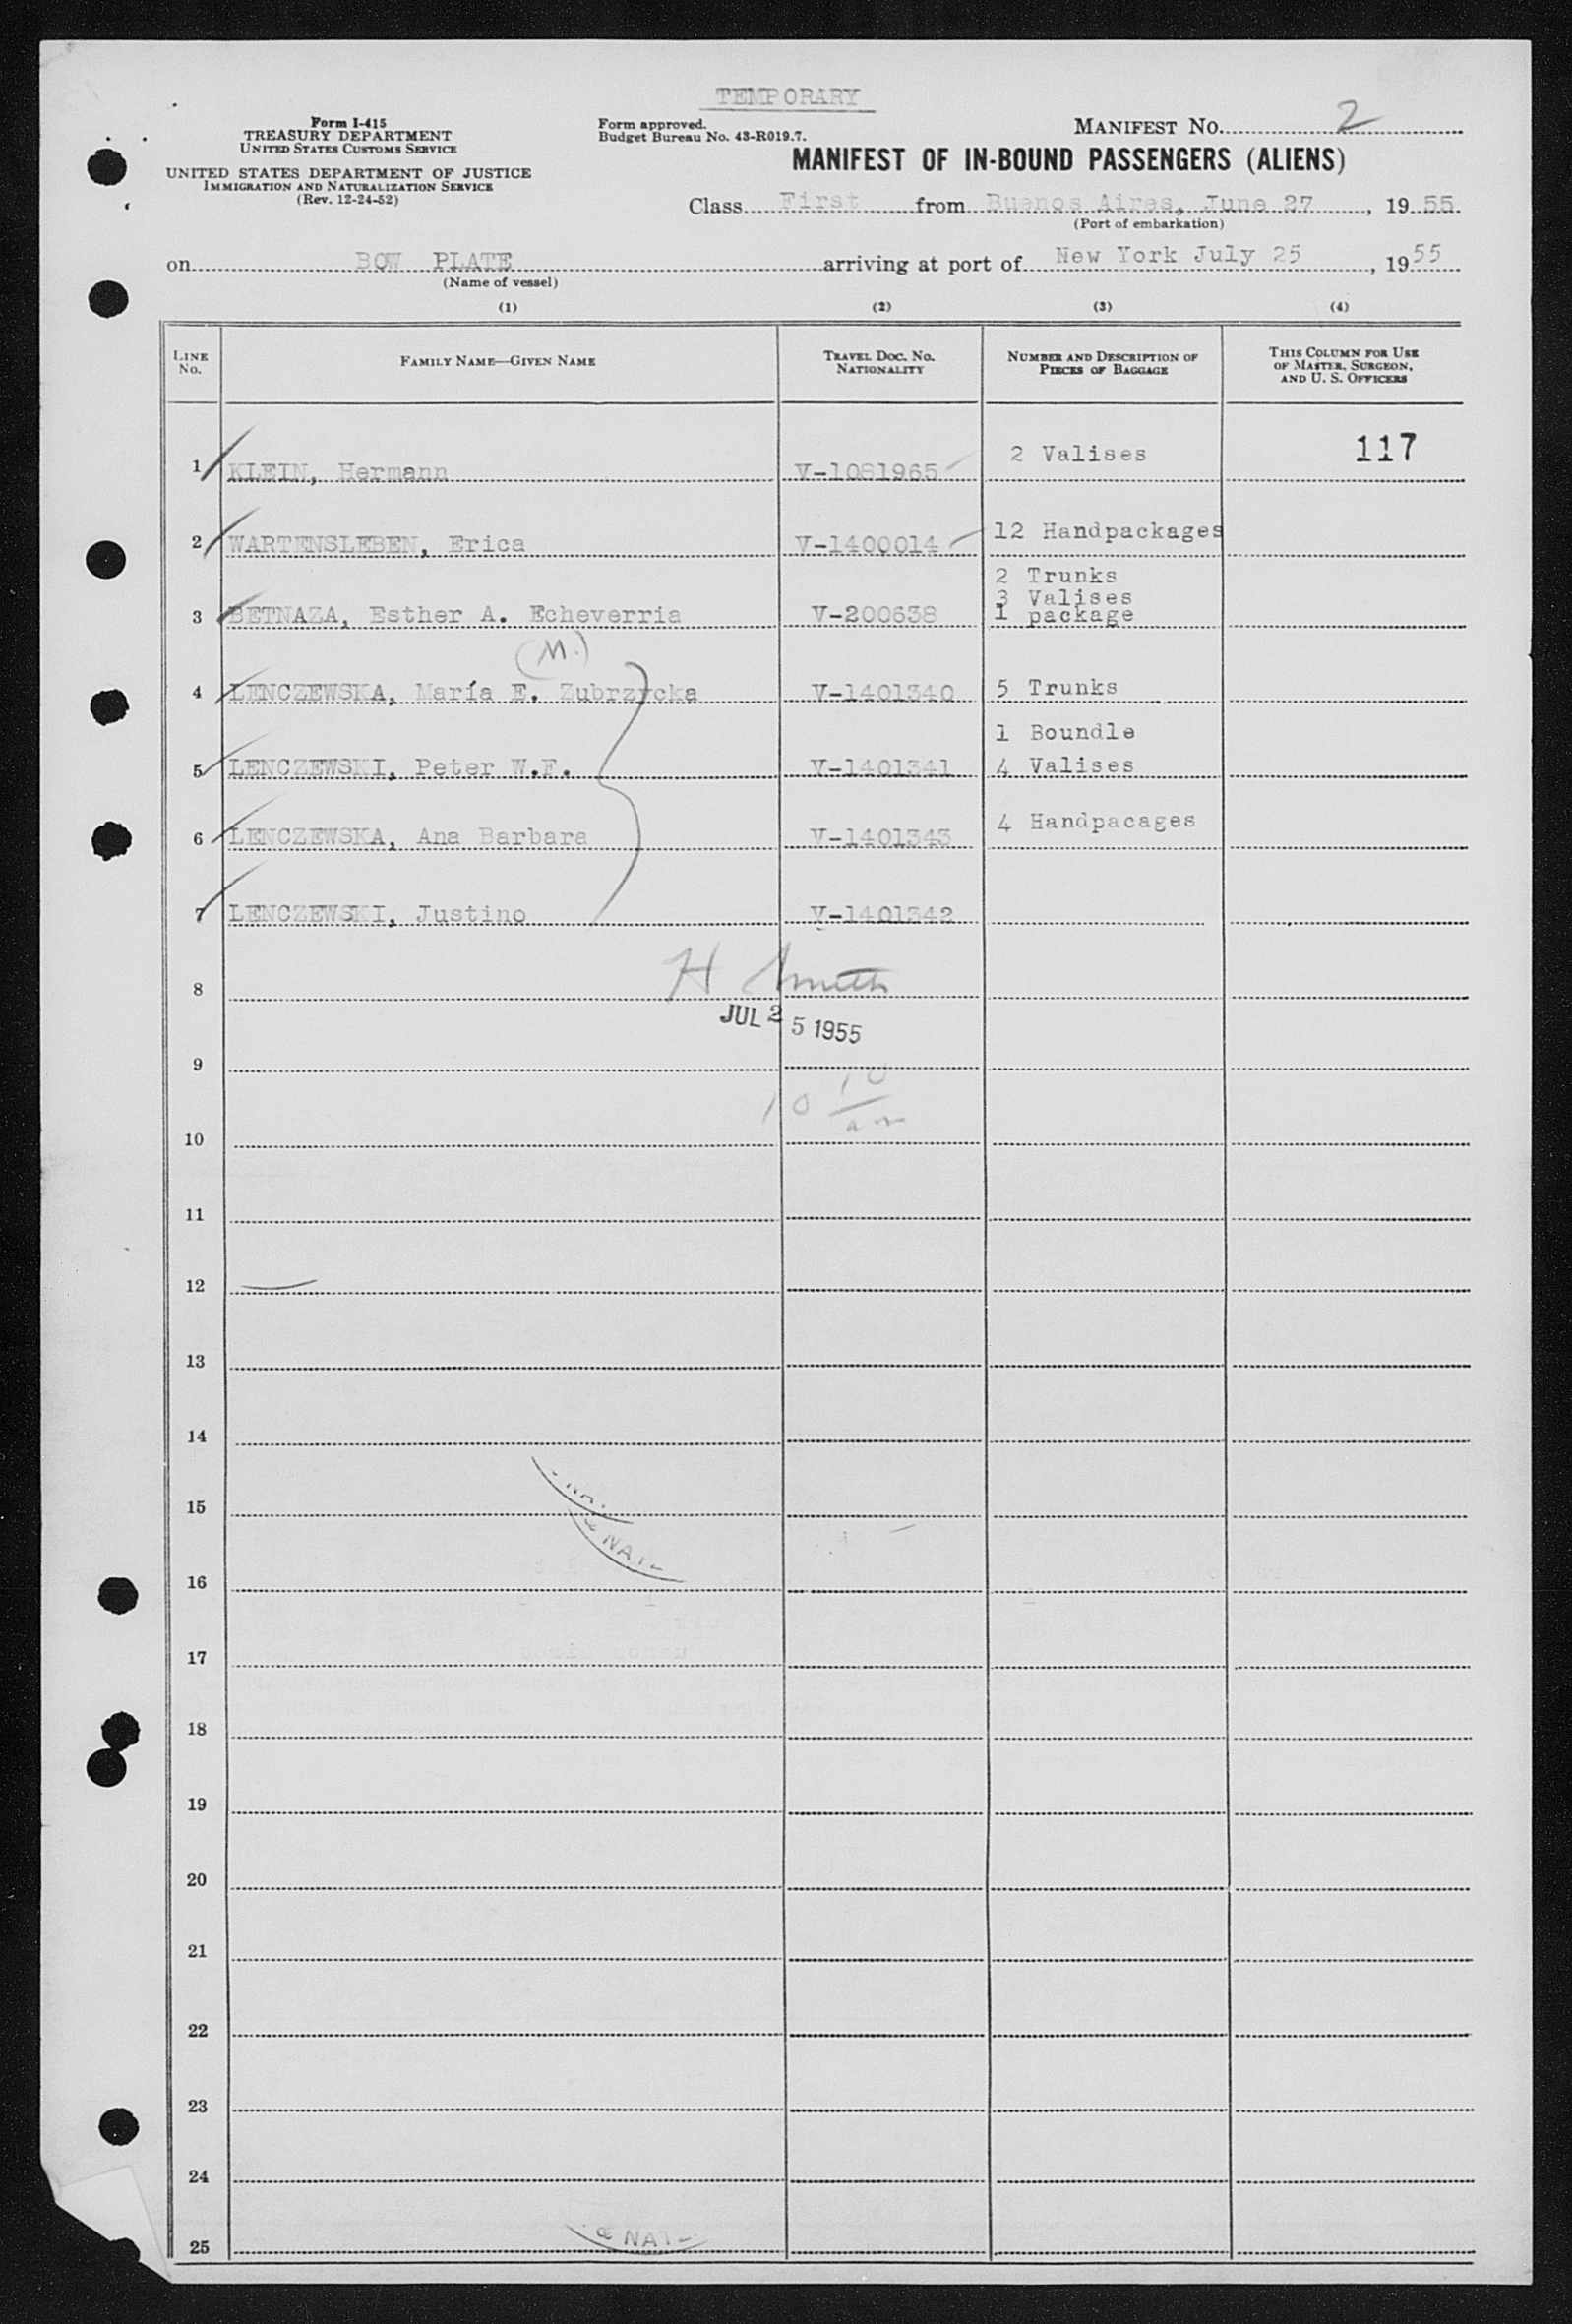 TEMPORARY
Form I-415
TREASURY DEPARTMENT
UNITED STATES CUSTOMS SERVICE
UNITED STATES DEPARTMENT OF JUSTICE
IMMIGRATION AND NATURALIZATION SERVICE
(Rev. 12-24-52)
Form approved.
Budget Bureau No. 43-R019.7.
MANIFEST NO. 2
MANIFEST OF IN-BOUND PASSENGERS (ALIENS)
Class First from Buenos Aires, June 27, 1955
(Port of embarkation)
on BOW PLATE arriving at port of New York July 25, 1955
(Name of vessel)
(1) (2) (3) (4)
LINE NO. FAMILY NAME—GIVEN NAME TRAVEL DOC. NO. NATIONALITY NUMBER AND DESCRIPTION OF PIECES OF BAGGAGE THIS COLUMN FOR USE OF MASTER, SURGEON, AND U. S. OFFICERS
1 KLEIN, Hermann V-1081965 2 Valises 117
2 WARTENSLEBEN, Erica V-1400014 12 Handpackages
2 Trunks
3 Valises
3 BETNAZA, Esther A. Echeverria V-200638 1 package
(M.)
4 LENCZEWSKA, María E. Zubrzycka V-1401340 5 Trunks
1 Boundle
5 LENCZEWSKI, Peter W.F. V-1401341 4 Valises
6 LENCZEWSKA, Ana Barbara V-1401343 4 Handpacages
7 LENCZEWSKI, Justino V-1401342
8 H Smith
JUL 25 1955
9
10 10/am
10
11
12
13
14
15
& NAT-
16
17
18
19
20
21
22
23
24
& NAT-
25